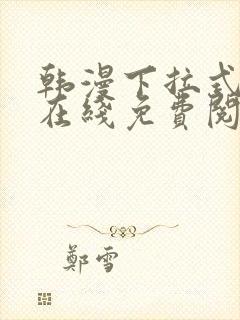 韩漫下拉式
在綫免費閱
鄭雪